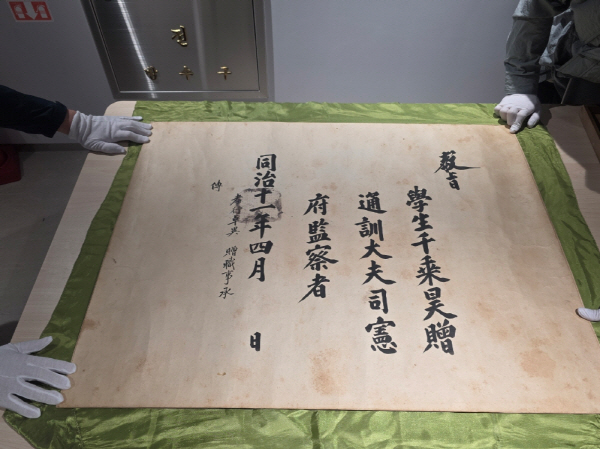 敎旨
學生千乘昊贈
通訓大夫司憲
府監察者
同治十一年四月 日
卓異 贈職事承
傳